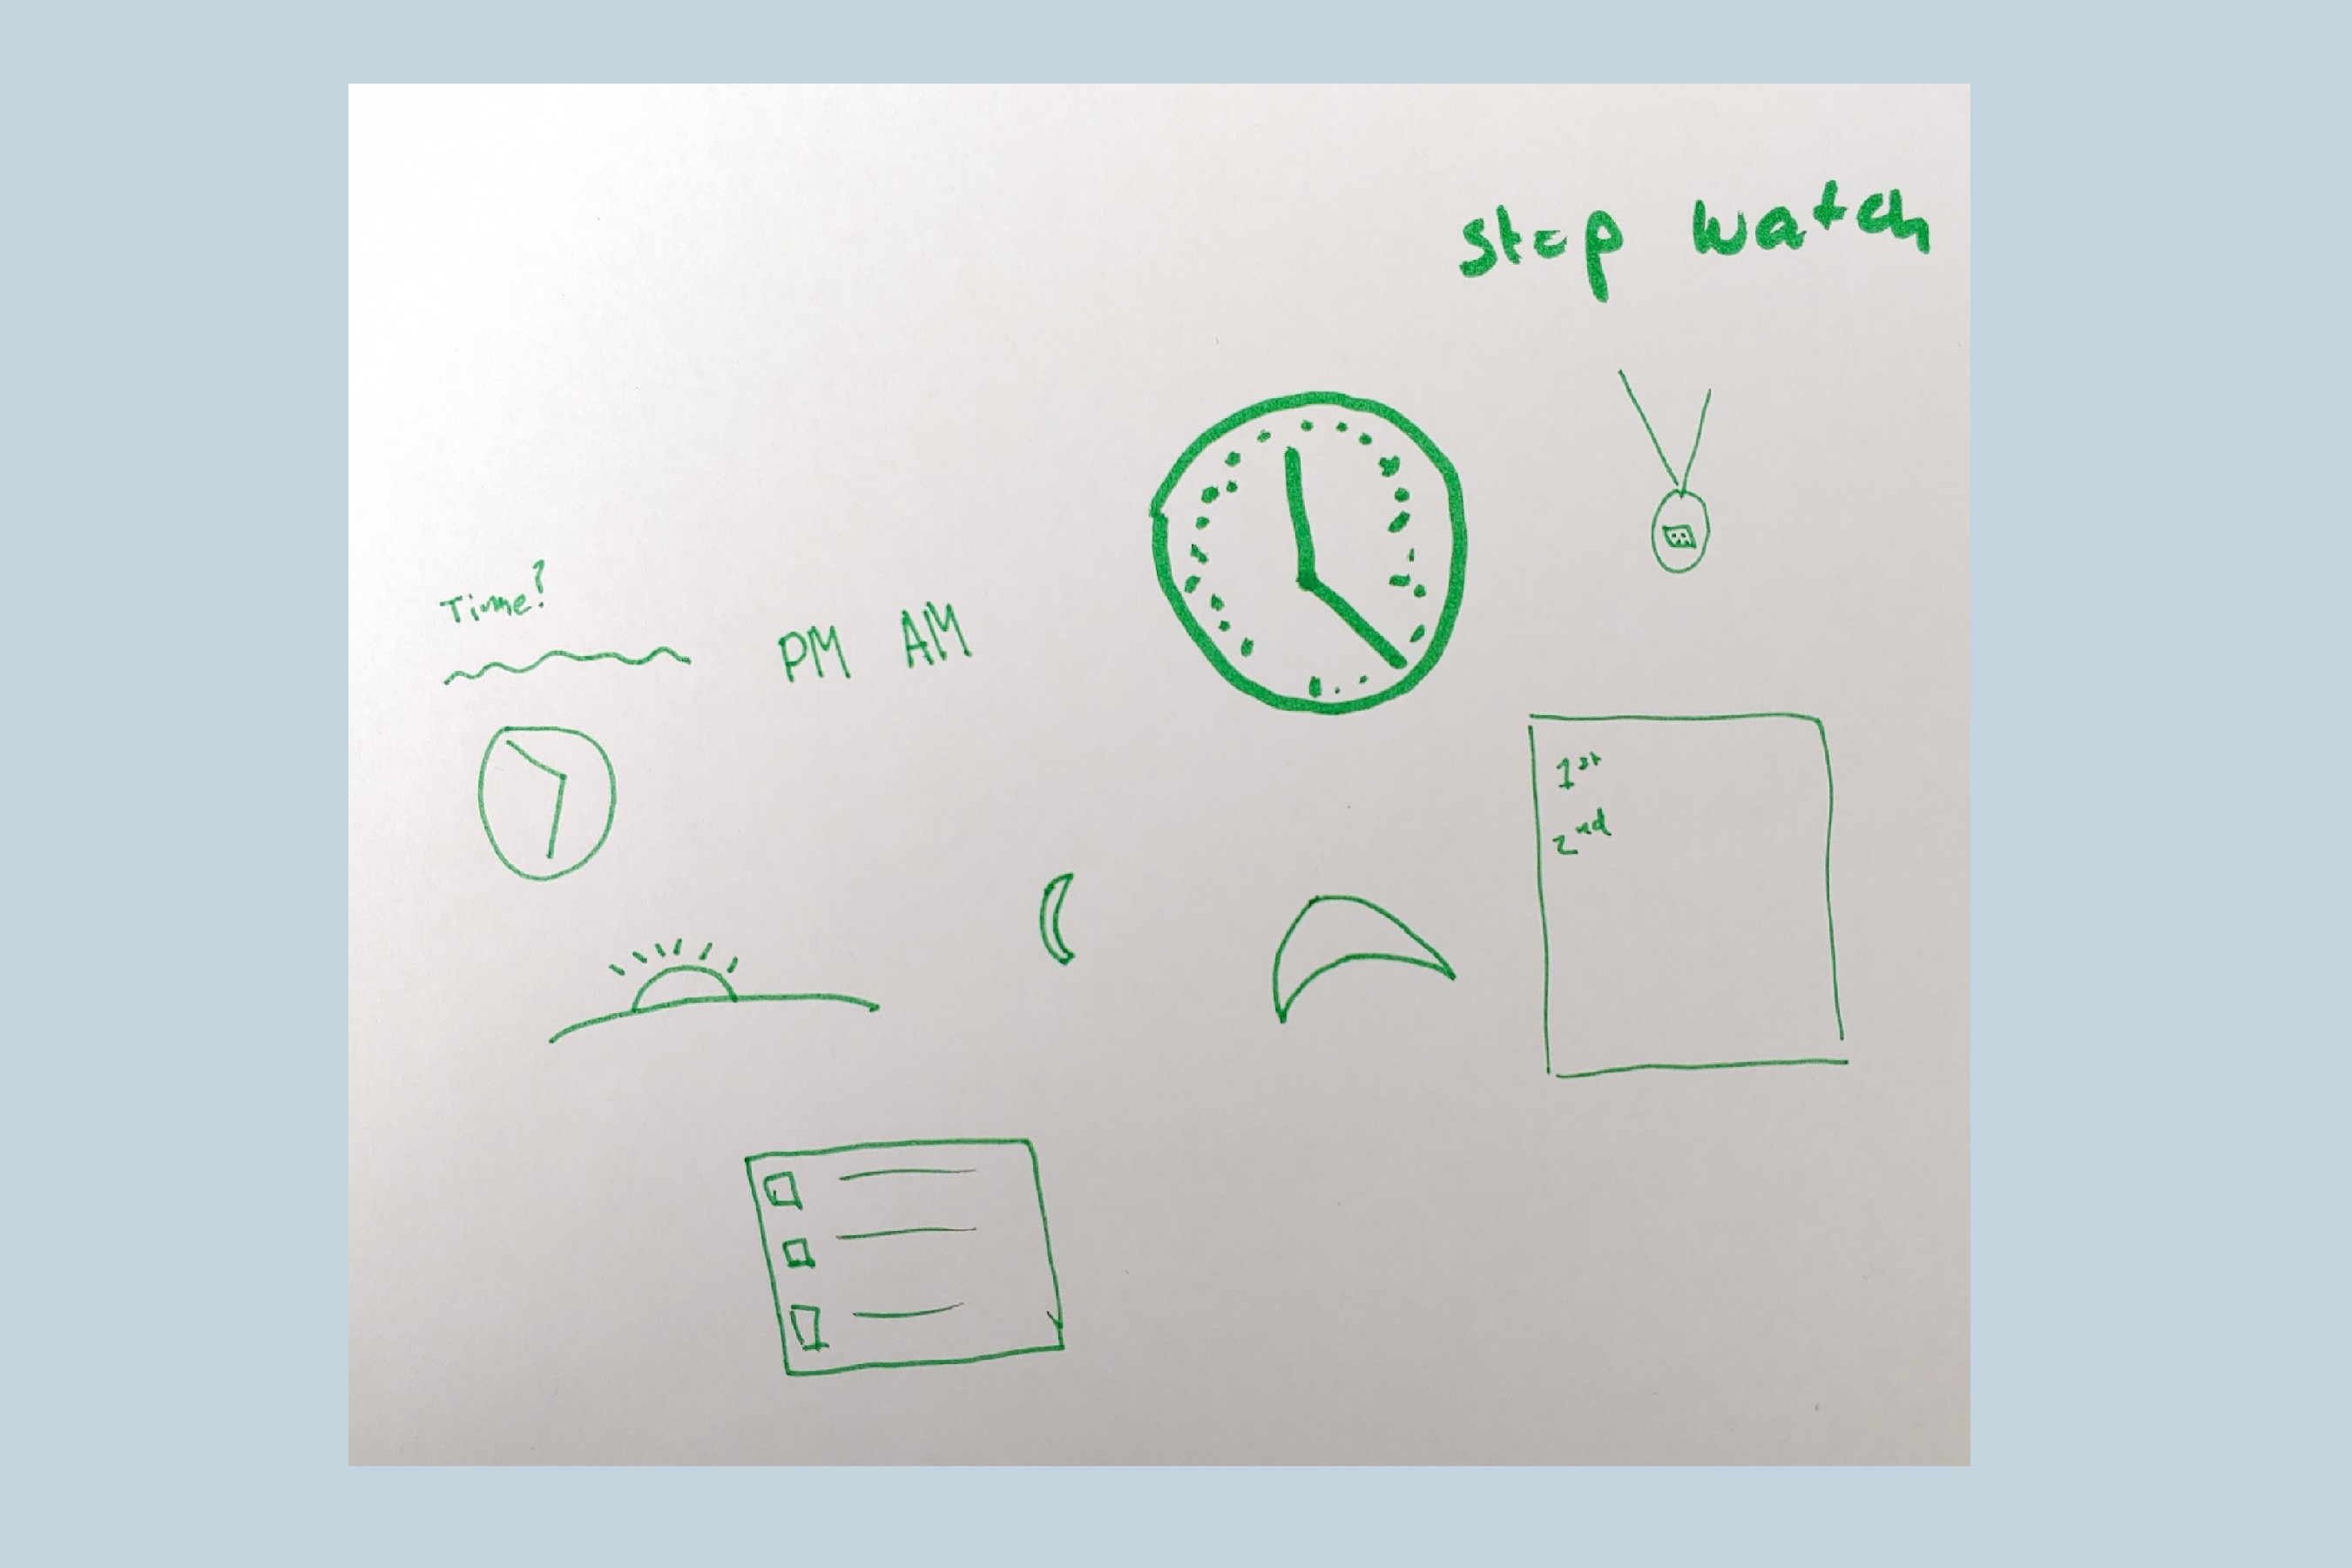 stop watch
Time?
PM AM
1st
2nd